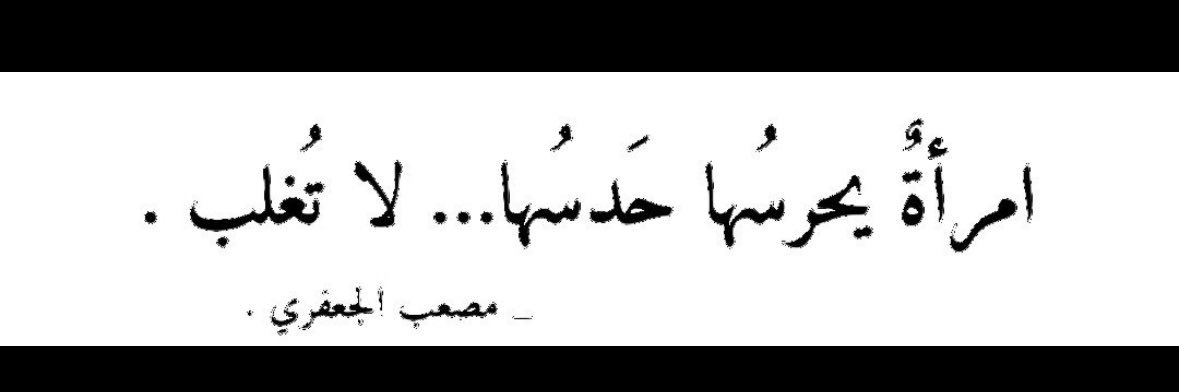 امرأةٌ يحرسُها حَدسُها... لا تُغلب .
_ مصعب الجعفري .